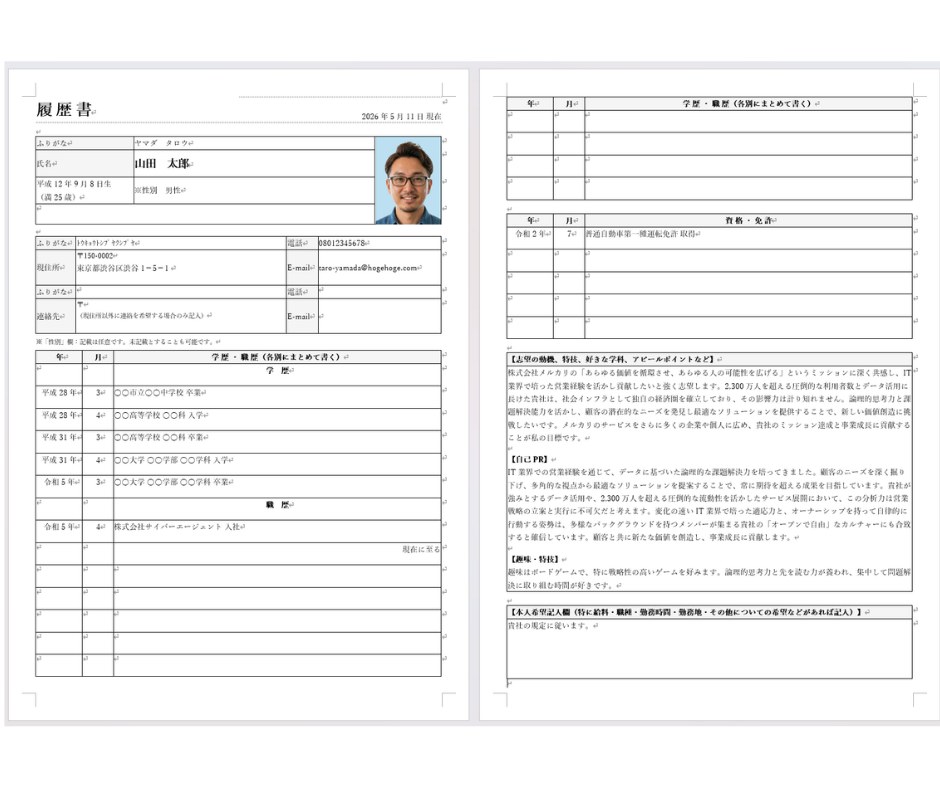 履歴書
2026年5月11日現在
ふりがな ヤマダ タロウ
氏名 山田 太郎
平成12年9月8日生
（満25歳） ※性別 男性
ふりがな ﾄｳｷｮｳﾄｼﾌﾞﾔｸｼﾌﾞﾔ 電話 08012345678
現住所 〒150-0002
東京都渋谷区渋谷1-5-1 E-mail taro-yamada@hogehoge.com
ふりがな 電話
連絡先 〒
（現住所以外に連絡を希望する場合のみ記入） E-mail
※「性別」欄：記載は任意です。未記載とすることも可能です。
年 月 学歴・職歴（各別にまとめて書く）
学 歴
平成28年 3 〇〇市立〇〇中学校 卒業
平成28年 4 〇〇高等学校 〇〇科 入学
平成31年 3 〇〇高等学校 〇〇科 卒業
平成31年 4 〇〇大学 〇〇学部 〇〇学科 入学
令和5年 3 〇〇大学 〇〇学部 〇〇学科 卒業
職 歴
令和5年 4 株式会社サイバーエージェント 入社
現在に至る
年 月 学歴・職歴（各別にまとめて書く）
年 月 資格・免許
令和2年 7 普通自動車第一種運転免許 取得
【志望の動機、特技、好きな学科、アピールポイントなど】
株式会社メルカリの「あらゆる価値を循環させ、あらゆる人の可能性を広げる」というミッションに深く共感し、IT
業界で培った営業経験を活かし貢献したいと強く志望します。2,300万人を超える圧倒的な利用者数とデータ活用に
長けた貴社は、社会インフラとして独自の経済圏を確立しており、その影響力は計り知れません。論理的思考力と課
題解決能力を活かし、顧客の潜在的なニーズを発見し最適なソリューションを提供することで、新しい価値創造に挑
戦したいです。メルカリのサービスをさらに多くの企業や個人に広め、貴社のミッション達成と事業成長に貢献する
ことが私の目標です。
【自己PR】
IT業界での営業経験を通じて、データに基づいた論理的な課題解決力を培ってきました。顧客のニーズを深く掘り
下げ、多角的な視点から最適なソリューションを提案することで、常に期待を超える成果を目指しています。貴社が
強みとするデータ活用や、2,300万人を超える圧倒的な流動性を活かしたサービス展開において、この分析力は営業
戦略の立案と実行に不可欠だと考えます。変化の速いIT業界で培った適応力と、オーナーシップを持って自律的に
行動する姿勢は、多様なバックグラウンドを持つメンバーが集まる貴社の「オープンで自由」なカルチャーにも合致
すると確信しています。顧客と共に新たな価値を創造し、事業成長に貢献します。
【趣味・特技】
趣味はボードゲームで、特に戦略性の高いゲームを好みます。論理的思考力と先を読む力が養われ、集中して問題解
決に取り組む時間が好きです。
【本人希望記入欄（特に給料・職種・勤務時間・勤務地・その他についての希望などがあれば記入）】
貴社の規定に従います。